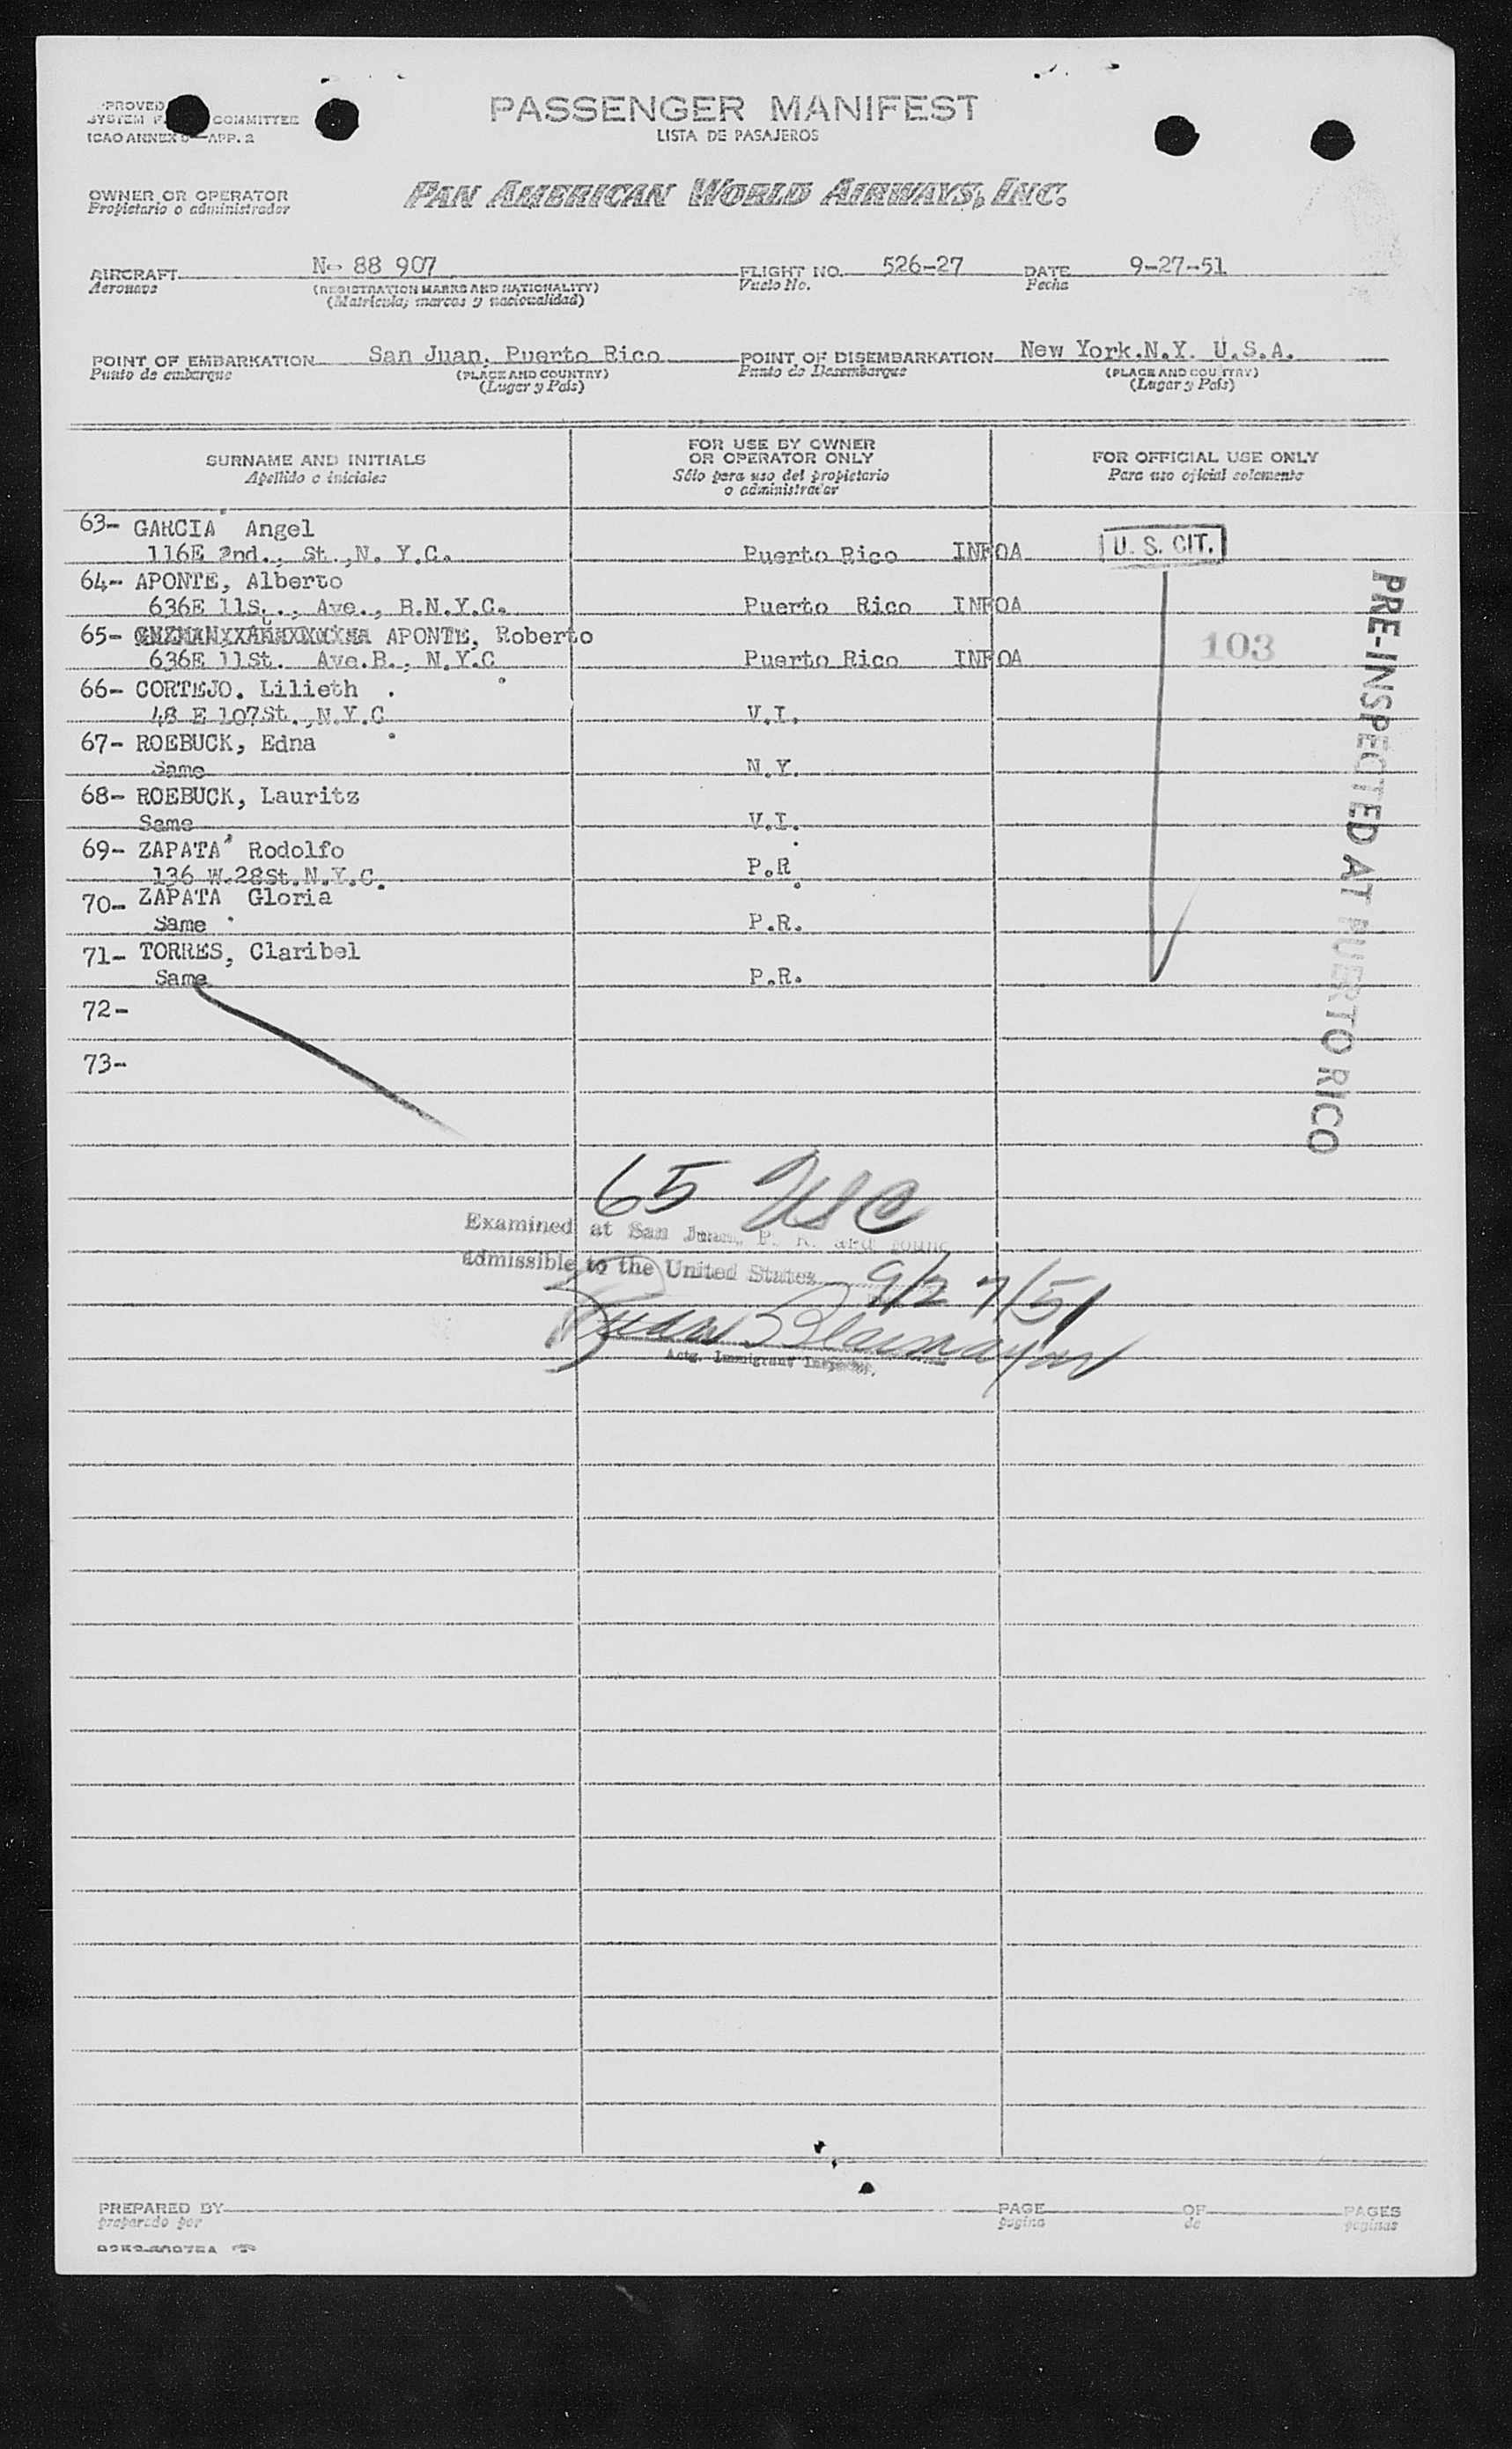 PASSENGER MANIFEST
LISTA DE PASAJEROS
PROVED
SYSTEM COMMITTEE
ICAO ANNEX 9—APP. 2
OWNER OR OPERATOR
Propietario o administrador
PAN AMERICAN WORLD AIRWAYS, INC.
AIRCRAFT N- 88 907 FLIGHT NO. 526-27 DATE 9-27-51
Aeronave (REGISTRATION MARKS AND NATIONALITY) Vuelo No. Fecha
(Matricula, marcas y nacionalidad)
POINT OF EMBARKATION San Juan, Puerto Rico POINT OF DISEMBARKATION New York,N.Y. U.S.A.
Punto de embarque (PLACE AND COUNTRY) Punto de Desembarque (PLACE AND COUNTRY)
(Lugar y País) (Lugar y País)
SURNAME AND INITIALS
Apellido e iniciales
FOR USE BY OWNER
OR OPERATOR ONLY
Sólo para uso del propietario
o administrador
FOR OFFICIAL USE ONLY
Para uso oficial solamente
63- GARCIA Angel
116E 2nd., St.,N. Y.C. Puerto Rico INFOA U. S. CIT.
64- APONTE, Alberto
636E 11S.., Ave., B.N.Y.C. Puerto Rico INFOA
65- APONTE, Roberto
636E 11St. Ave.B., N.Y.C Puerto Rico INFOA 103
66- CORTEJO. Lilieth .
48 E 107St.,N.Y.C V.I.
67- ROEBUCK, Edna
Same N.Y.
68- ROEBUCK, Lauritz
Same V.I.
69- ZAPATA Rodolfo
136 W.28St.N.Y.C. P.R
70- ZAPATA Gloria
Same P.R.
71- TORRES, Claribel
Same P.R.
72-
73-
PRE-INSPECTED AT PUERTO RICO
65 USC
Examined at San Juan, P. R. and found
admissible to the United States 9/27/51
Juan
Actg. Immigrant Inspector.
PREPARED BY PAGE OF PAGES
preparado por pagina de paginas